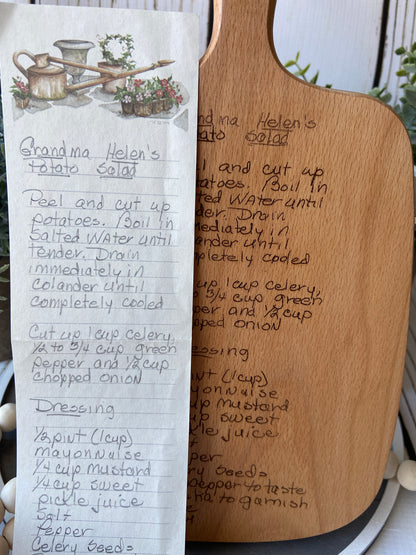 Grandma Helen's
Potato Salad
Peel and cut up
potatoes. Boil in
Salted Water until
tender. Drain
immediately in
colander until
completely cooled
Cut up 1 cup celery,
1/2 to 3/4 cup green
pepper and 1/2 cup
chopped onion
Dressing
1/2 pint (1 cup)
mayonnaise
1/4 cup mustard
1/4 cup sweet
pickle juice
Salt
Pepper
Celery Seeds
ndma Helen's
ato Salad
l and cut up
atoes. Boil in
ted Water until
der. Drain
mediately in
ander until
pletely cooled
up 1 cup celery,
3/4 cup green
per and 1/2 cup
pped onion
ssing
int (1 cup)
ayonnaise
up mustard
up sweet
kle juice
per
lery Seeds
epper to taste
ika to garnish